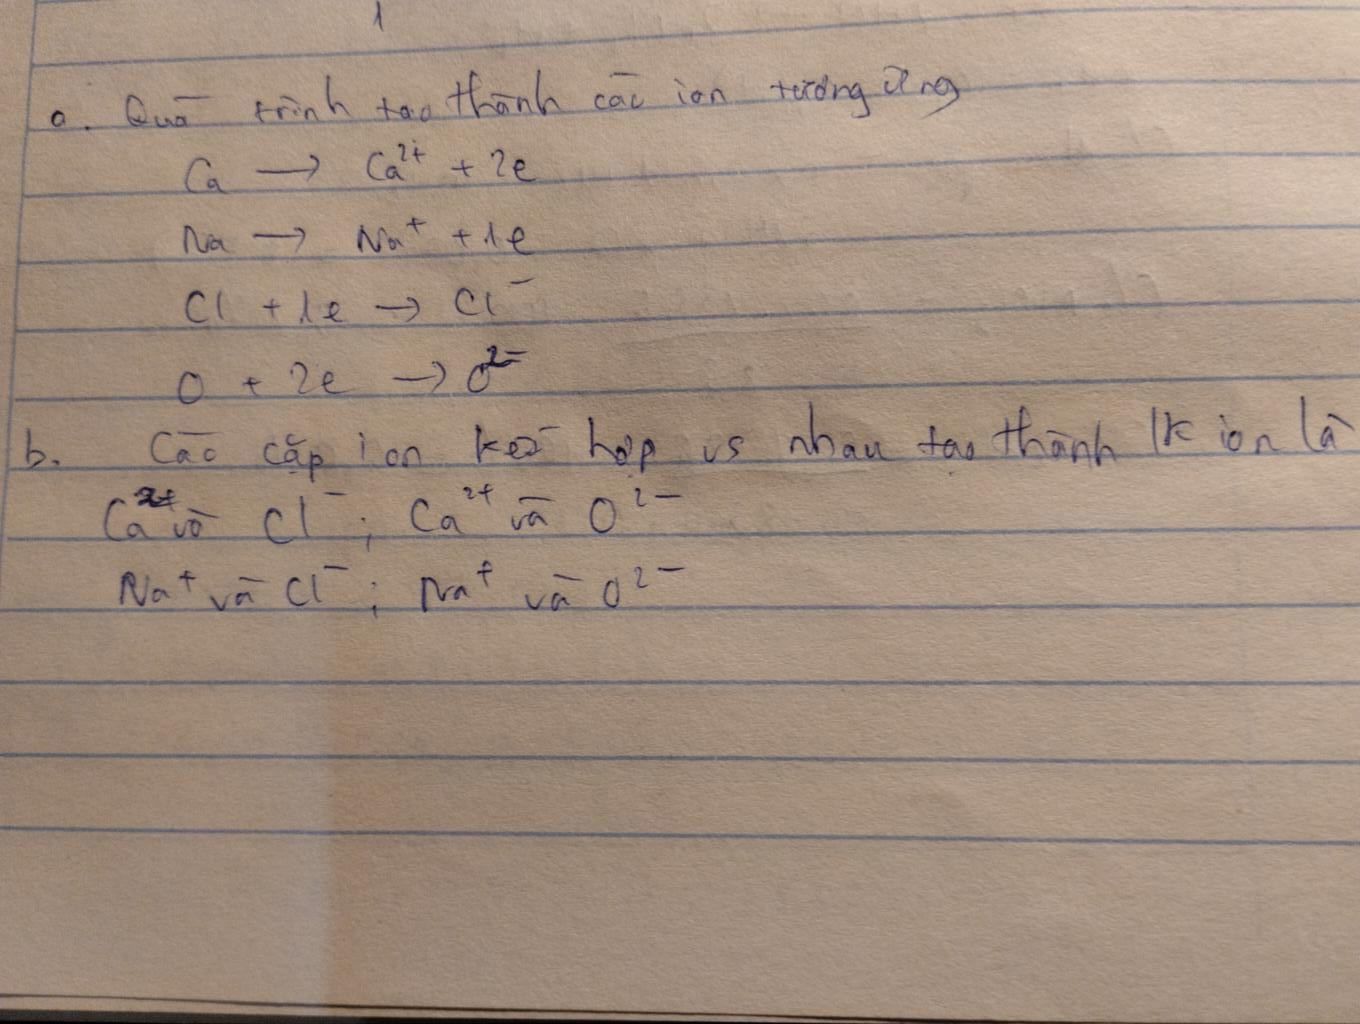 1
a. Quá trình tạo thành các ion tương ứng
Ca → Ca²⁺ + 2e
Na → Na⁺ + 1e
Cl + 1e → Cl⁻
O + 2e → O²⁻
b. Các cặp ion kết hợp vs nhau tạo thành lk ion là
Ca²⁺ và Cl⁻ ; Ca²⁺ và O²⁻
Na⁺ và Cl⁻ ; Na⁺ và O²⁻